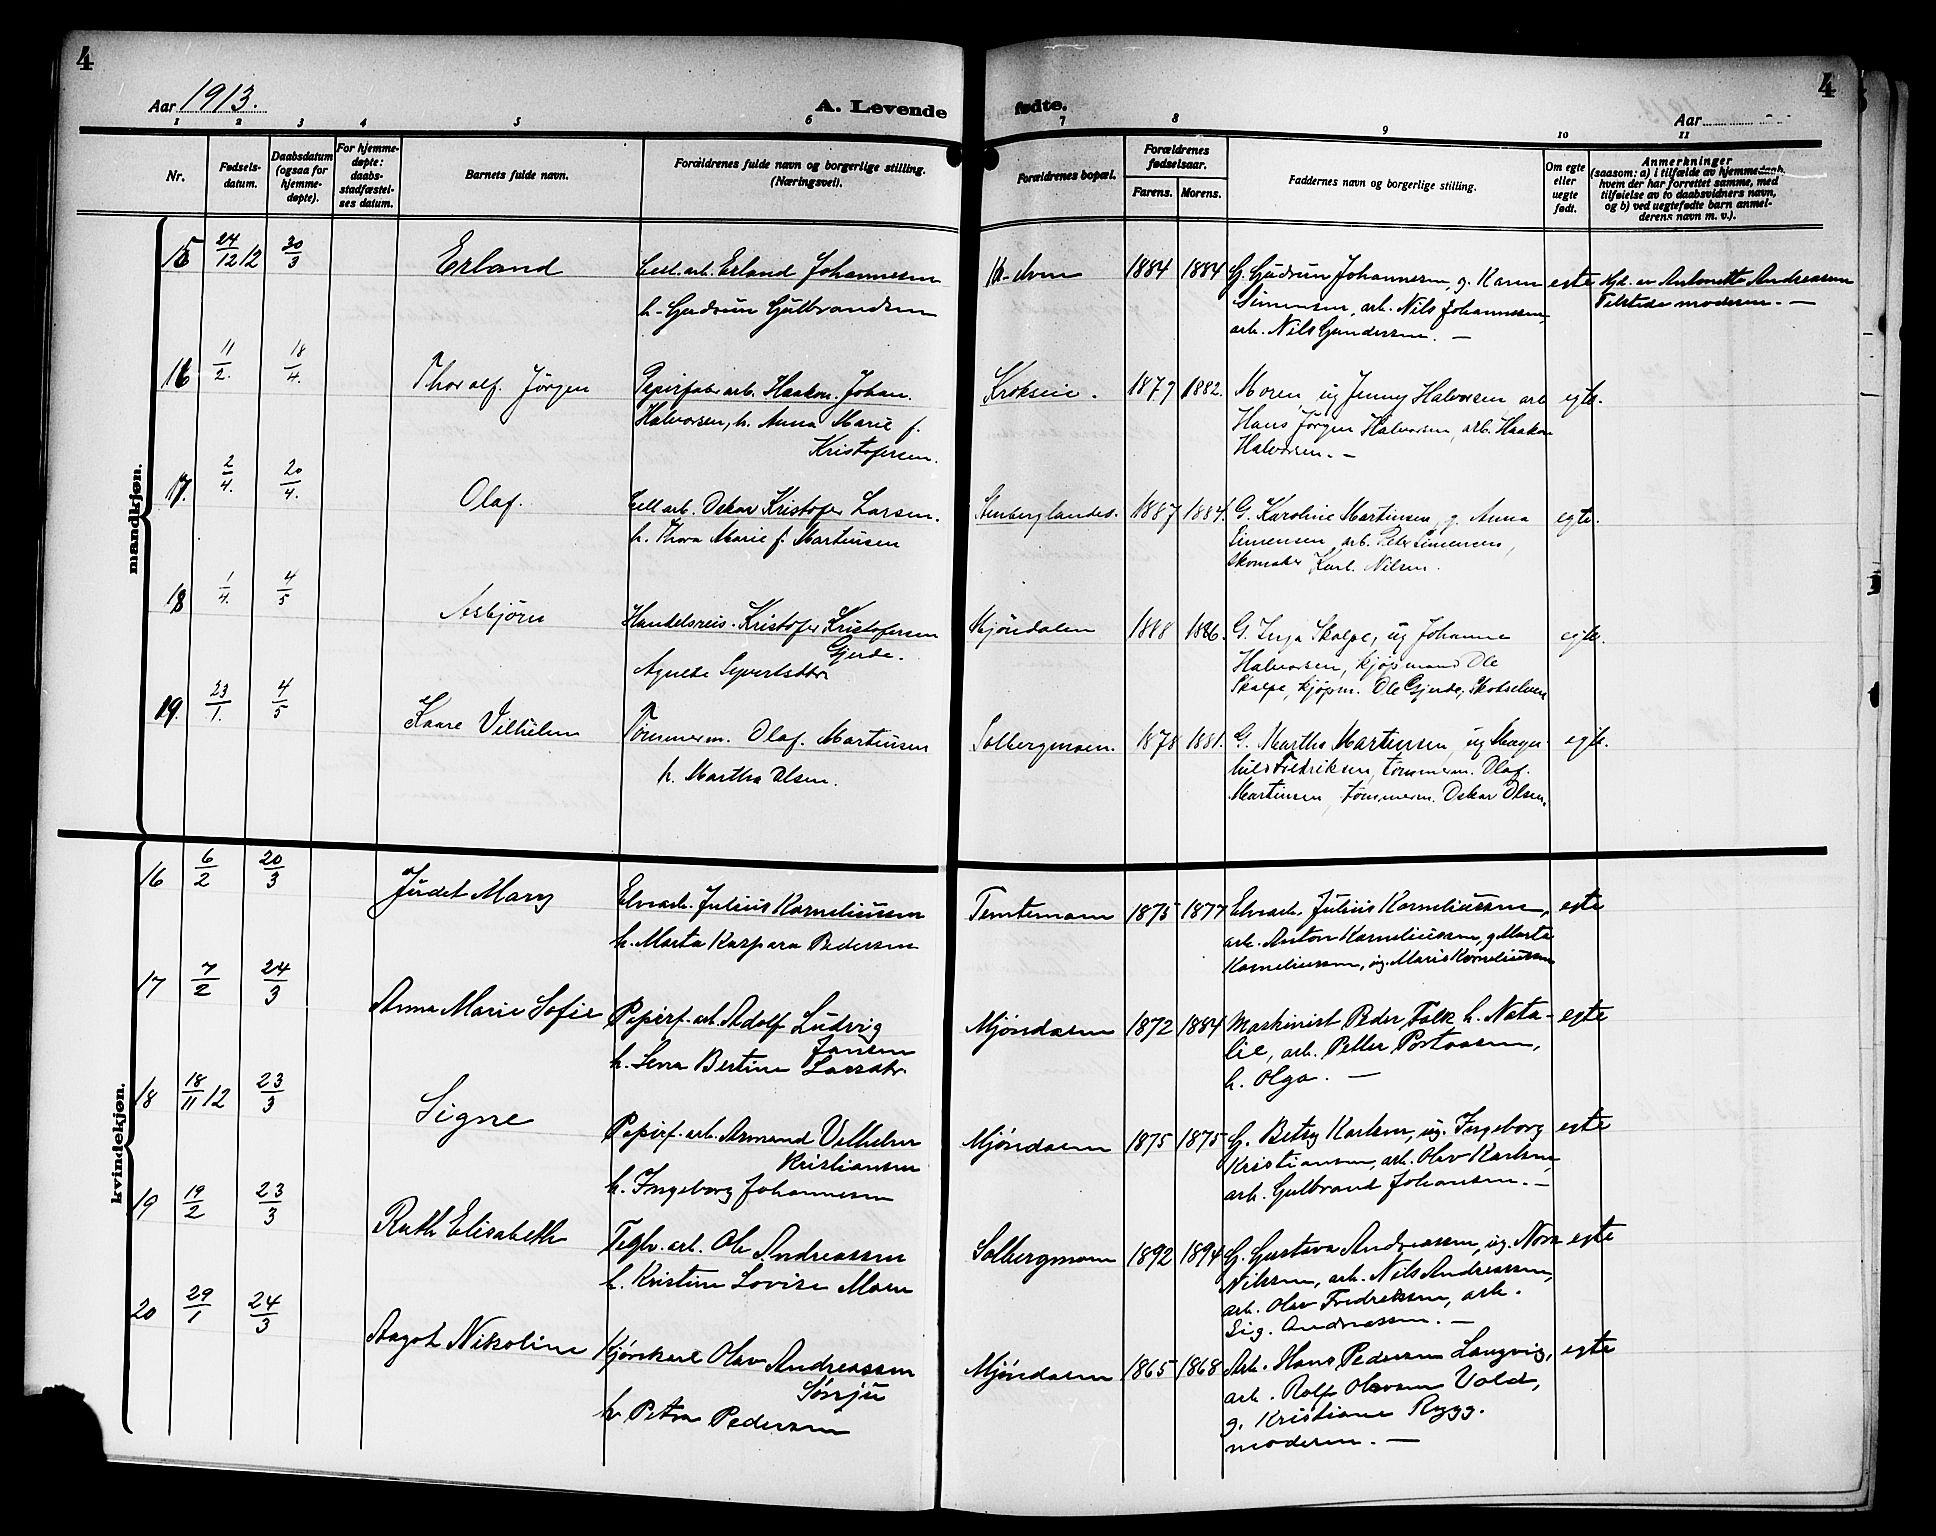 4
Aar 1913.
A. Levende
fødte.
4
Aar
1 2 3 4 5 6 7 8 9 10 11
Nr.
Fødsels-
datum.
Daabsdatum
(ogsaa for
hjemme-
døpte).
For hjemme-
døpte:
daabs-
stadfæstel-
ses datum.
Barnets fulde navn.
Forældrenes fulde navn og borgerlige stilling.
(Næringsvei).
Forældrenes bopæl.
Forældrenes
fødselsaar.
Farens. Morens.
Faddernes navn og borgerlige stilling.
Om egte
eller
uegte
født.
Anmerkninger
(saasom: a) i tilfælde av hjemmedaab,
hvem der har forrettet samme, med
tilføielse av to daabsvidners navn,
og b) ved uegtefødte barn anmel-
derens navn m. v.).
mandkjøn.
15 24/12 12 30/3 Erland
Cell. arb. Erland Johannesen
h. Gudrun Gulbrandsen
1884 1884
G. Gudrun Johannesen, g. Karen
Simensen, arb. Nils Johannesen,
arb. Nils Gundersen. —
egte
Hjd. av Antonette Andreassen
Tilstede moderen. —
16 11/2. 18/4. Thoralf Jørgen
Papirfabr. arb. Haakon Johan
Halvorsen, h. Anna Marie f.
Kristofersen.
Krokseie. 1879 1882.
Moren, ug Jenny Halvorsen arb
Hans Jørgen Halvorsen, arb. Haakon
Halvorsen. —
egte.
17. 2/4. 20/4. Olaf.
Cell arb. Oskar Kristofer Larsen.
h. Thora Marie f. Martinsen
Stenberglandes. 1887 1884.
G. Karoline Martinsen, g. Anna
Simensen, arb. Peter Simensen,
skomaker Karl Nilsen.
egte.
18 1/4. 4/5 Asbjørn
Handelsreis. Kristofer Kristofersen
Gjerde.
Agnete Syvertsdtr
Mjøndalen 1888 1886.
G. Inga Skalpe, ug Johanne
Halvorsen, kjøpmand Ole
Skalpe, kjøpm. Ole Gjerde, Skotselven
egte.
19. 23/1. 4/5 Kaare Vilhelm
Tømmerm. Olaf Martinsen
h. Martha Olsen.
Solbergmoen. 1878 1881.
G. Martha Martinsen, ug Mag-
Fredriksen, tømmerm. Olaf
Martinsen, tømmerm. Oskar Olsen.
egte.
kvindekjøn.
16 6/2 20/3 Judet Mary
Elvearb. Julius Korneliussen
h. Marta Kaspara Pedersen
Temtemoen 1875 1877
Elvearb. Julius Korneliussen,
arb. Anton Korneliussen, g Marta
Korneliussen, ug. Marie Korneliussen
egte
17 7/2 24/3 Anna Marie Sofie
Papirf. arb. Adolf Ludvig
Jansen
h. Lena Bertine Larsdtr
Mjøndalen 1872 1884
Maskinist Peder Falk h. Nata-
lie, arb. Petter Portaasen,
h. Olga. —
egte
18 18/11 12 23/3 Signe
Papirf. arb. Armand Vilhelm
Kristiansen
h. Ingeborg Johannesen
Mjøndalen 1875 1875
G. Betsy Karlsen, ug. Ingeborg
Kristiansen, arb. Olav Karlsen,
arb. Gulbrand Johansen. —
egte
19 19/2 23/3 Ruth Elisabeth
Teglv. arb. Ole Andreassen
h. Kristine Lovise Moen
Solbergmoen 1892 1894
G. Gustava Andreassen, ug. Nora
Nilssen, arb. Nils Andreassen,
arb. Olav Fredriksen, arb.
Sig. Andreassen. —
egte
20 29/1 24/3 Aagot Nikoline
Kjørekarl Olav Andreassen
Sørsju
h. Petra Pedersen
Mjøndalen 1865 1868
Arb. Hans Pedersen Langvig,
arb. Rolf Olavsen Vold,
g. Kristiane Rygg.
moderen. —
egte